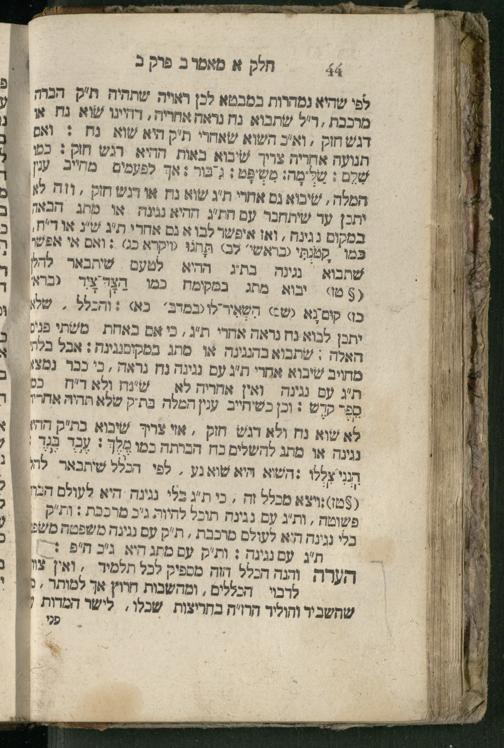 חלק א מאמר ב פרק ב 44
לפי שהיא נמהרות במבטא לכן ראויה שתהיה ת״ק הברה
מרכבת, ר״ל שתבוא נח נראה אחריה, דהיינו שוא נח או
דגש חזק, וא״כ השוא שאחרי ת״ק היא שוא נח : ואם
תנועה אחריה צריך שיבוא באות ההיא דגש חזק : כמו
שלם : שלימה: משפט: גבור: אך לפעמים מחייב ענין
המלה, שיבוא גם אחרי ת״ג שוא נח או דגש חזק, וזה לא
יתכן עד שיתחבר עם הת״ג ההיא נגינה או מתג הבאה
במקום נגינה, ואז איפשר לבוא גם אחרי ת״ג ש״נ או ד״ח,
כמו קטנתי (בראשי׳ לב) תתנו (ויקרא כג) : ואם אי אפשר
שתבוא נגינה בת״ג ההיא לטעם שיתבאר להלן
(§ טז) יבוא מתג במקומה כמו הצד־ציד (ברא׳
כז) קום־נא (שם) השאיר־לו (במדב׳ כא) : והכלל, שלא
יתכן לבוא נח נראה אחרי ת״ג, כי אם באחת משתי פנים
האלה : שתבוא בה נגינה או מתג במקום נגינה : אבל בלתי
מחויב שיבוא אחרי ת״ג עם נגינה נח נראה, כי כבר נמצא
ת״ג עם נגינה ואין אחריה לא ש״נח ולא ד״ח כמ
ספר קדש : וכן כשיחייב ענין המלה בת״ק שלא תהיה אחריה
לא שוא נח ולא דגש חזק, אזי צריך שיבוא בת״ק ההיא
נגינה או מתג להשלים כח הברתה כמו מלך : עבד בגד :
הנני צללו : השוא היא שוא נע, לפי הכלל שיתבאר להל
(§טז): ויצא מכלל זה, כי ת״ג בלי נגינה היא לעולם הברה
פשוטה, ות״ג עם נגינה תוכל להיות ג״כ מרכבת : ות״ק
בלי נגינה היא לעולם מרכבת, ת״ק עם נגינה משפטה משפט
ת״ג עם נגינה : ות״ק עם מתג היא ג״כ ה״פ :
הערה והנה הכלל הזה מספיק לכל תלמיד, ואין צורך
לרבוי הכללים, ומהשבות חרוץ אך למותר,
שחשב״יר והוליד הרז״ה בחריצות שכלו, לישר המדות
פני